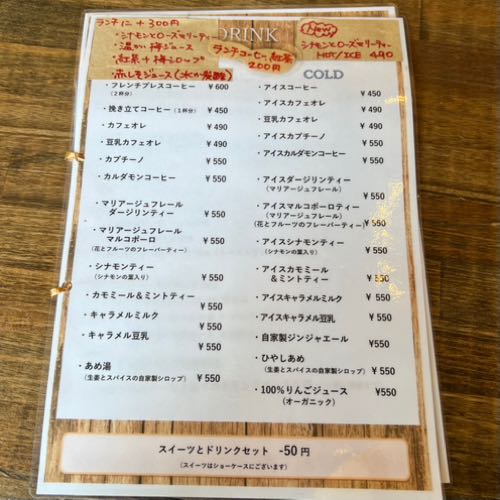 ランチに+300円
・シナモンとローズマリーティー
・温かい梅ジュース
・紅茶+梅シロップ
・赤しそジュース(水or炭酸)
DRINK
ランチコーヒー紅茶
200円
New
シナモンとローズマリーティー
HOT/ICE 490
・フレンチプレスコーヒー ¥600
(2杯分)
・挽き立てコーヒー(1杯分) ¥450
・カフェオレ ¥490
・豆乳カフェオレ ¥490
・カプチーノ ¥550
・カルダモンコーヒー ¥550
・マリアージュフレール
ダージリンティー ¥550
・マリアージュフレール
マルコポーロ ¥550
(花とフルーツのフレーバーティー)
・シナモンティー
(シナモンの葉入り) ¥550
・カモミール&ミントティー
¥550
・キャラメルミルク
¥550
・キャラメル豆乳
¥550
・あめ湯
(生姜とスパイスの自家製シロップ) ¥550
COLD
・アイスコーヒー ¥450
・アイスカフェオレ ¥490
・豆乳カフェオレ ¥490
・アイスカプチーノ ¥550
・アイスカルダモンコーヒー ¥550
・アイスダージリンティー ¥550
(マリアージュフレール)
・アイスマルコポーロティー ¥550
(マリアージュフレール)
(花とフルーツのフレーバーティー)
・アイスシナモンティー ¥550
(シナモンの葉入り)
・アイスカモミール
&ミントティー ¥550
・アイスキャラメルミルク ¥550
・アイスキャラメル豆乳 ¥550
・自家製ジンジャエール ¥550
・ひやしあめ
(生姜とスパイスの自家製シロップ) ¥550
・100%りんごジュース ¥550
(オーガニック)
スイーツとドリンクセット -50円
(スイーツはショーケースにございます)